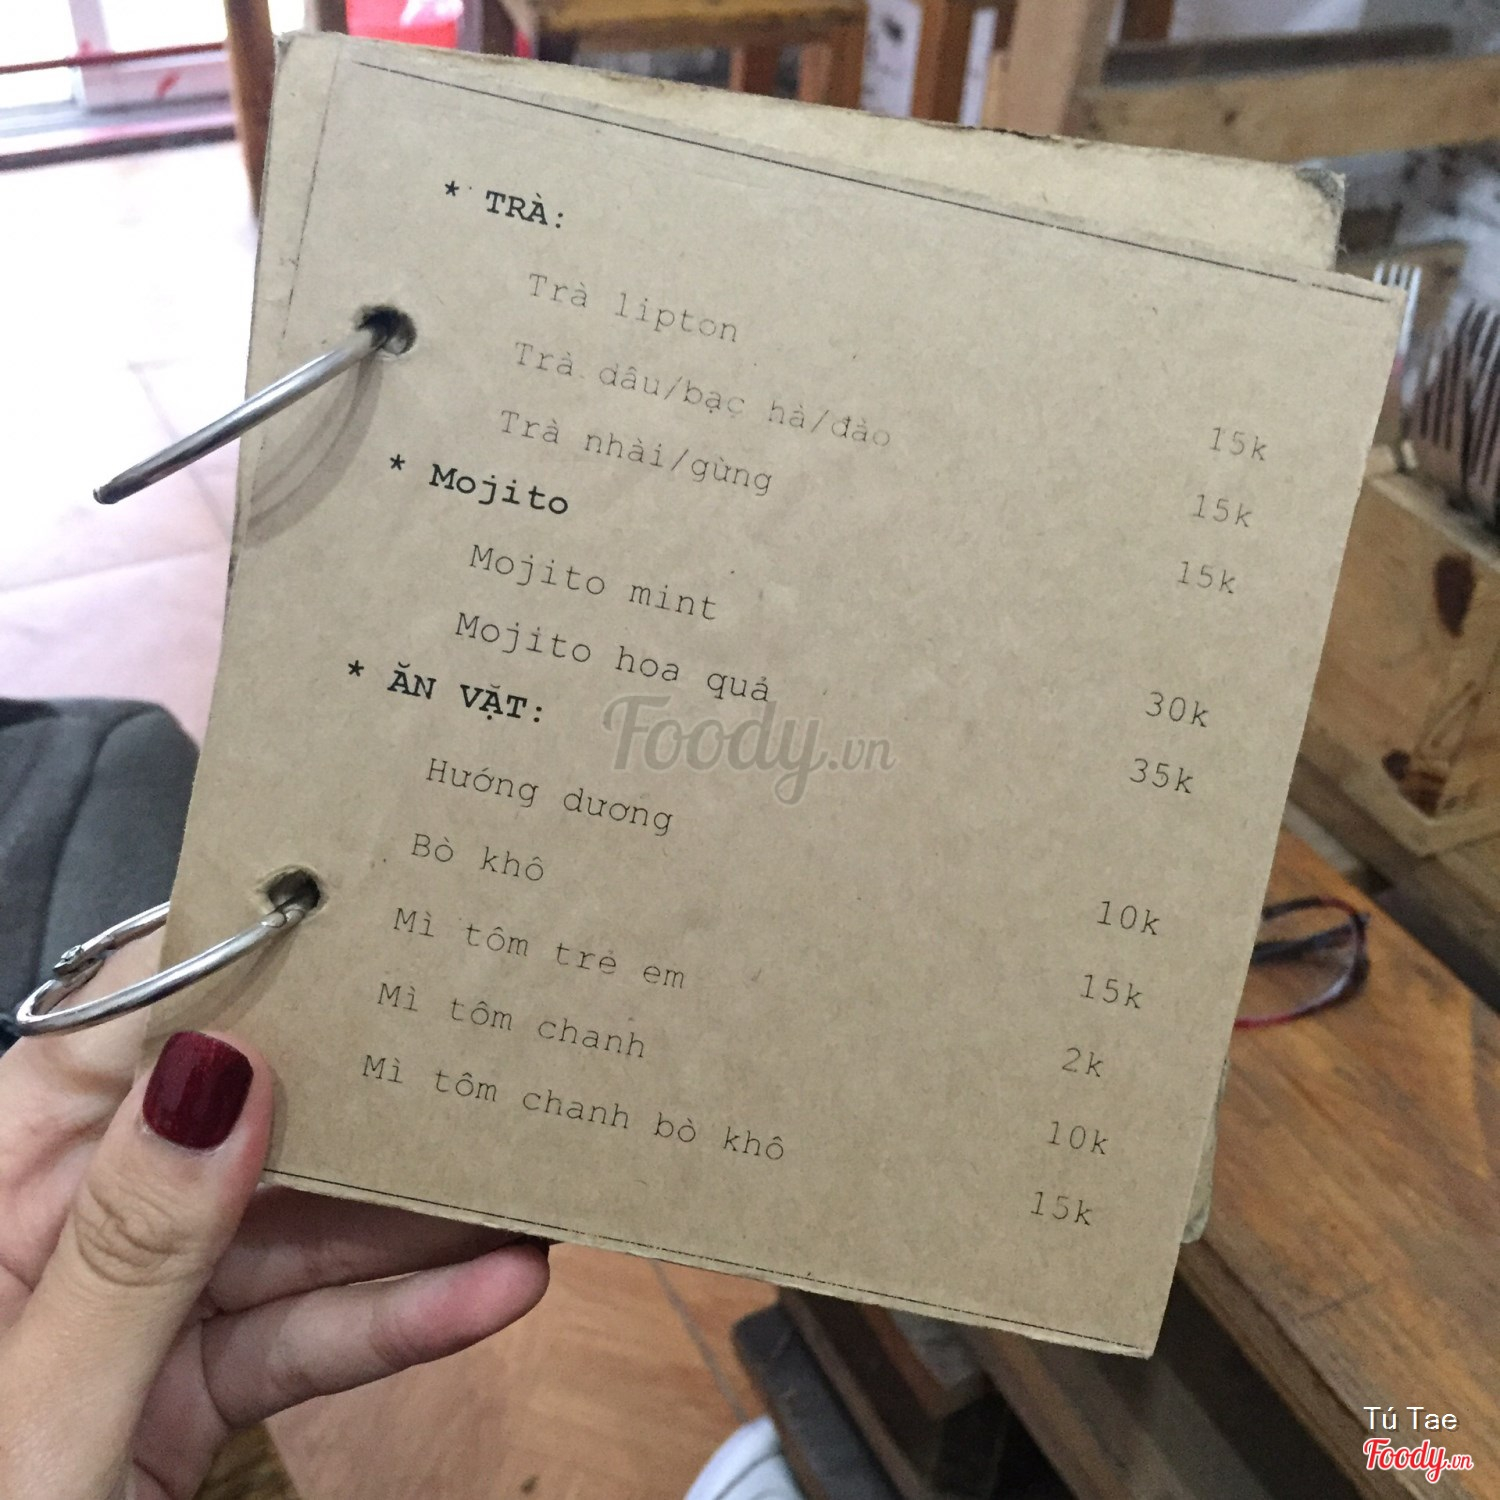 * TRÀ:
Trà lipton 15k
Trà dâu/bạc hà/đào 15k
Trà nhài/gừng 15k
* Mojito
Mojito mint 30k
Mojito hoa quả 35k
* ĂN VẶT:
Hướng dương 10k
Bò khô 15k
Mì tôm trẻ em 2k
Mì tôm chanh 10k
Mì tôm chanh bò khô 15k
Foody.vn
Tú Tae
Foody.vn